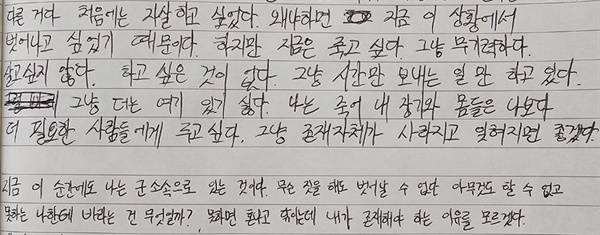 다른 거다. 처음에는 자살하고 싶었다. 왜냐하면 지금 이 상황에서
벗어나고 싶었기 때문이다. 하지만 지금은 죽고 싶다. 그냥 무기력하다.
살고싶지 않다. 하고 싶은 것이 없다. 그냥 시간만 보내는 일만 하고 있다.
그냥 더는 여기 있기 싫다. 나는 죽어 내 장기와 몸들은 나보다
더 필요한 사람들에게 주고싶다. 그냥 존재자체가 사라지고 잊혀지면 좋겠다.
지금 이 순간에도 나는 군 소속으로 있는 것이다. 무슨 짓을 해도 벗어날 수 없단 아무것도 할 수 없고
못하는 나한테 바라는 건 무엇일까? 못하면 혼나고 내가 존재해야 하는 이유를 모르겠다.